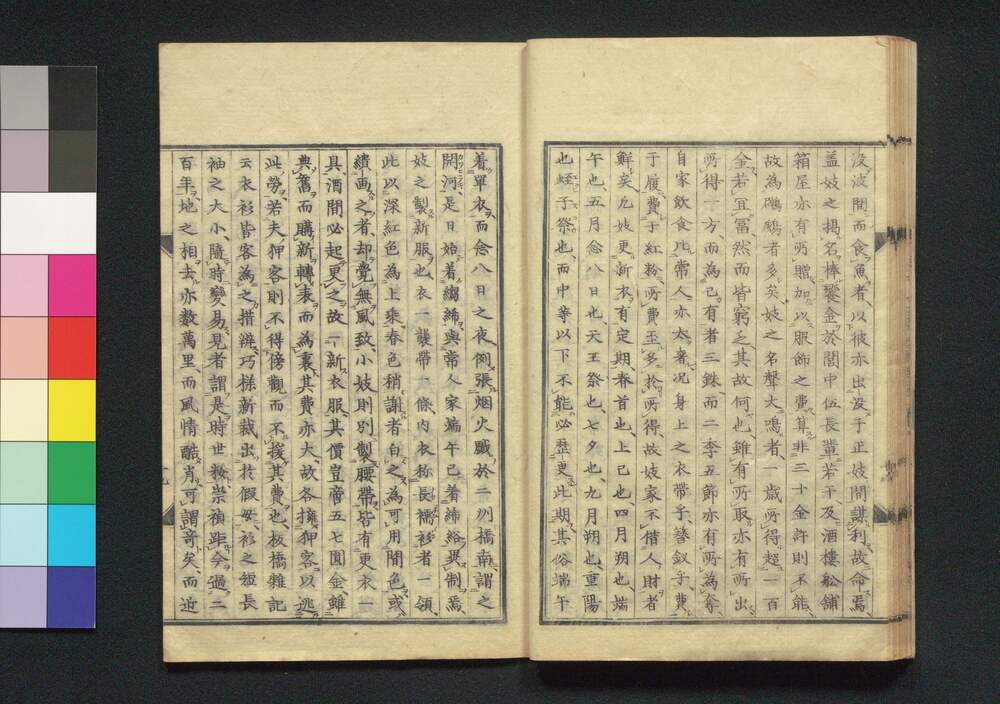 没波間而食魚者、以彼亦出没于正妓間謀利故命焉
蓋妓之揭名棒饗金於閭中伍長輩若干及酒樓舩舖
箱屋亦有所贈加以服飾之費算非三十金許則不能
故為鸕鶿者多矣妓之名聲大鳴者一歳所得超一百
金若宜冨然而皆窮之其故何也雖有所取亦有所出
所得一方而為己有者三銖而二季五節亦有所為奪
自家飲食比常人亦太奢况身上之衣帶乎簪釵乎費
于履費于紅粉所費至多於所得故妓家不借人財者
鮮矣凡妓更浙衣有定期春首也上巳也四月朔也端
午也五月念八日也天王祭也七夕也九月朔也重陽
也蛭子祭也而中等以下不能必歴更此期其俗端午
着單衣而念八日之夜例張烟火戲於二州橋南謂之
開河是日始着縐絺與常人家端午已着絺綌異制焉
妓之製新服也衣一襲帶一條内衣称長襦衫者一領
此以深紅色為上乘春色稍謝者白之為可用間色或
績画之者却覺無風致小妓則別製腰帶皆有更衣一
具酒間必起更之故一新衣服其價豈啻五七圓金雖
典舊而購新轉表而為裏其費亦大故各擁狎客以逃
此勞若夫狎客則不得傍觀而不援其費也板橋雜記
云衣衫皆客為之措辨巧樣新裁出於假母衫之短長
袖之大小随時變易見者謂是時世妝崇禎距今過二
百年地之相去亦数萬里而風情酷肖可謂竒矣而近